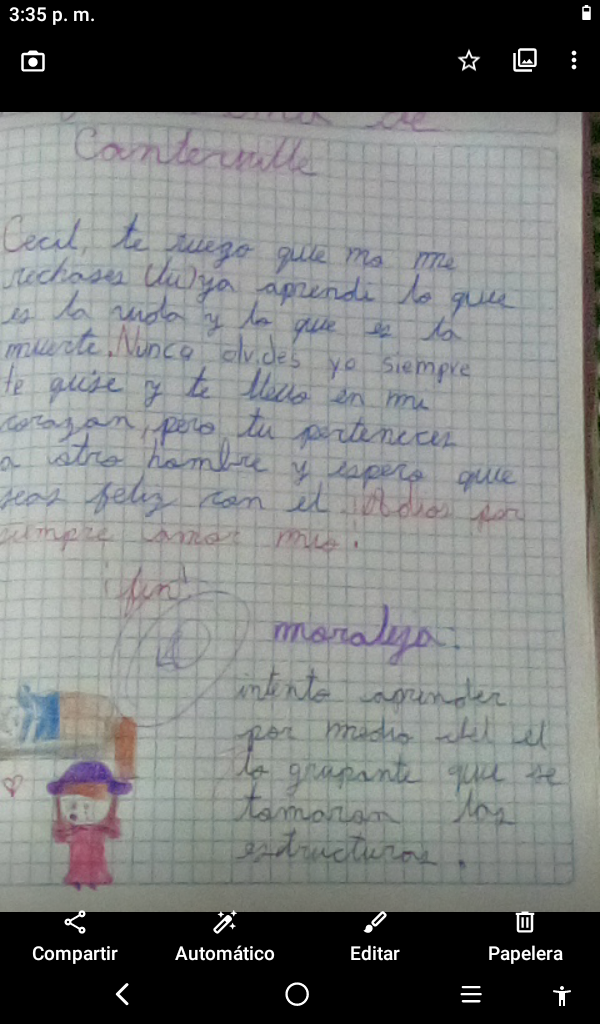 3:35 p. m.
de
Canterville
Cecil, te ruego que no me
rechases (tu) ya aprendi lo que
es la vida y lo que es la
muerte. Nunca olvides yo siempre
te quise y te llevo en mi
corazon, pero tu perteneces
a otro hombre y espero que
seas feliz con el ¡Adios por
siempre amor mio!
¡fin!
moraleja:
intento aprender
por medio del el
lo que se
tomaron las
estructuras.
Compartir
Automático
Editar
Papelera